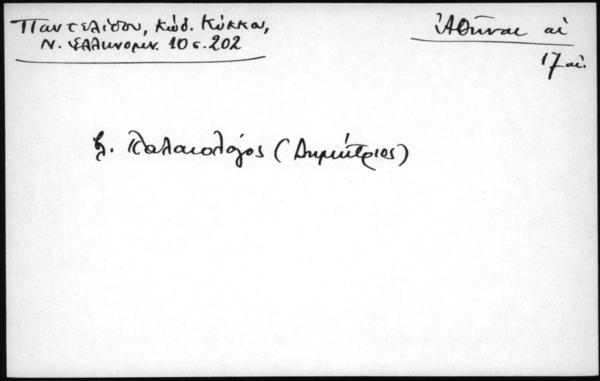 Παντελίδου, κώδ. Κύκκου,
Ν. Ελληνομν. 10 σ. 202
Ἀθῆναι αἱ
17 αἰ.
β. Παλαιολόγος (Δημήτριος)